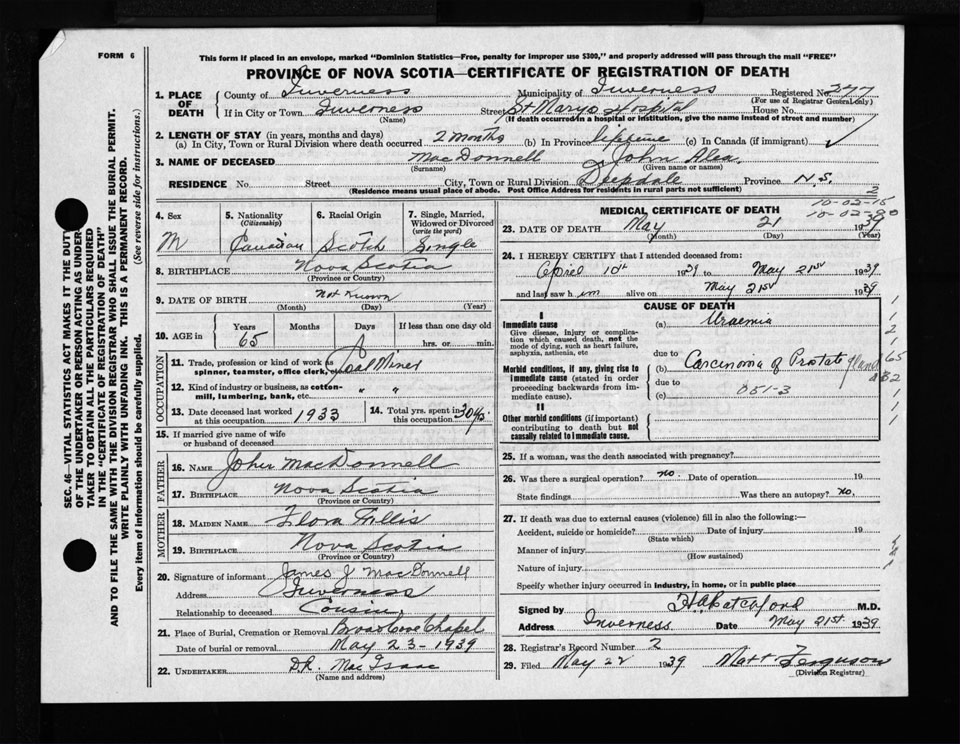 FORM 6
This form if placed in an envelope, marked "Dominion Statistics—Free, penalty for improper use $300," and properly addressed will pass through the mail "FREE"
PROVINCE OF NOVA SCOTIA—CERTIFICATE OF REGISTRATION OF DEATH
SEC. 46—VITAL STATISTICS ACT MAKES IT THE DUTY
OF THE UNDERTAKER OR PERSON ACTING AS UNDER-
TAKER TO OBTAIN ALL THE PARTICULARS REQUIRED
IN THE "CERTIFICATE OF REGISTRATION OF DEATH"
AND TO FILE THE SAME WITH THE DIVISION REGISTRAR WHO SHALL ISSUE THE BURIAL PERMIT.
WRITE PLAINLY WITH UNFADING INK. THIS IS A PERMANENT RECORD.
Every item of information should be carefully supplied. (See reverse side for instructions.)
1. PLACE OF DEATH County of Inverness Municipality of Inverness Registered No. 277
(For use of Registrar General only)
If in City or Town Inverness Street St Marys Hospital House No.
(Name) (If death occurred in a hospital or institution, give the name instead of street and number)
2. LENGTH OF STAY (in years, months and days)
(a) In City, Town or Rural Division where death occurred 2 months (b) In Province lifetime (c) In Canada (if immigrant)
3. NAME OF DECEASED MacDonnell John Alex.
(Surname) (Given name or names)
RESIDENCE No. Street City, Town or Rural Division Deepdale Province N.S.
(Residence means usual place of abode. Post Office Address for residents in rural parts not sufficient)
4. Sex M
5. Nationality (Citizenship) Canadian
6. Racial Origin Scotch
7. Single, Married, Widowed or Divorced (write the word) Single
8. BIRTHPLACE Nova Scotia
(Province or Country)
9. DATE OF BIRTH Not Known
(Month) (Day) (Year)
10. AGE in Years Months Days If less than one day old
65 hrs. or min.
OCCUPATION
11. Trade, profession or kind of work as spinner, teamster, office clerk, etc. Coal Miner
12. Kind of industry or business, as cotton-mill, lumbering, bank, etc. " "
13. Date deceased last worked at this occupation 1933
14. Total yrs. spent in this occupation 30 yrs.
15. If married give name of wife or husband of deceased
FATHER
16. NAME John MacDonnell
17. BIRTHPLACE Nova Scotia
(Province or Country)
MOTHER
18. MAIDEN NAME Flora Gillis
19. BIRTHPLACE Nova Scotia
(Province or Country)
20. Signature of informant James J MacDonnell
Address Inverness
Relationship to deceased Cousin
21. Place of Burial, Cremation or Removal Broad Cove Chapel
Date of burial or removal May 23 - 1939
22. UNDERTAKER D.R. Mac Isaac
(Name and address)
MEDICAL CERTIFICATE OF DEATH
10-02-15
10-02-
23. DATE OF DEATH May 21 1939
(Month) (Day) (Year)
24. I HEREBY CERTIFY that I attended deceased from:
April 10th 1939 to May 21st 1939
and last saw him alive on May 21st 1939
CAUSE OF DEATH
I
Immediate cause
Give disease, injury or complication which caused death, not the mode of dying, such as heart failure, asphyxia, asthenia, etc
(a) Uraemia
due to
Morbid conditions, if any, giving rise to immediate cause (stated in order proceeding backwards from immediate cause).
(b) Carcinoma of Prostate gland
due to
(c) 051-3
II
Other morbid conditions (if important) contributing to death but not causally related to immediate cause.
25. If a woman, was the death associated with pregnancy?
26. Was there a surgical operation? no Date of operation 19
State findings Was there an autopsy? no.
27. If death was due to external causes (violence) fill in also the following:—
Accident, suicide or homicide? Date of injury 19
(State which)
Manner of injury
(How sustained)
Nature of injury
Specify whether injury occurred in industry, in home, or in public place
Signed by H. A. Ratchford M.D.
Address Inverness Date May 21st 1939
28. Registrar's Record Number 2
29. Filed May 22 1939 Matt Ferguson
(Division Registrar)